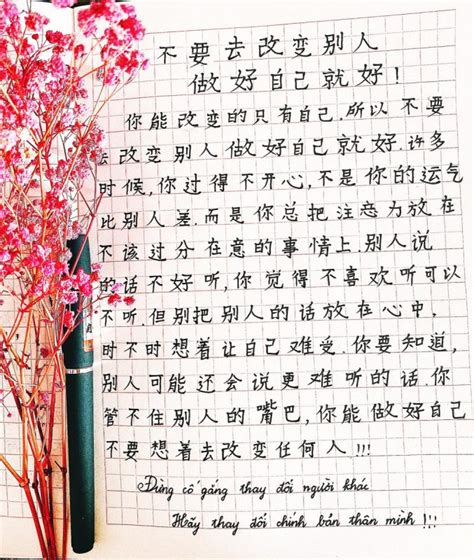 不要去改变别人
做好自己就好!
你能改变的只有自己.所以不要
去改变别人做好自己就好.许多
时候,你过得不开心,不是你的运气
比别人差.而是你总把注意力放在
不该过分在意的事情上.别人说
的话不好听,你觉得不喜欢听可以
不听.但别把别人的话放在心中,
时不时想着让自己难受.你要知道,
别人可能还会说更难听的话.你
管不住别人的嘴巴,你能做好自己
不要想着去改变任何人!!!
Đừng cố gắng thay đổi người khác
Hãy thay đổi chính bản thân mình !!!